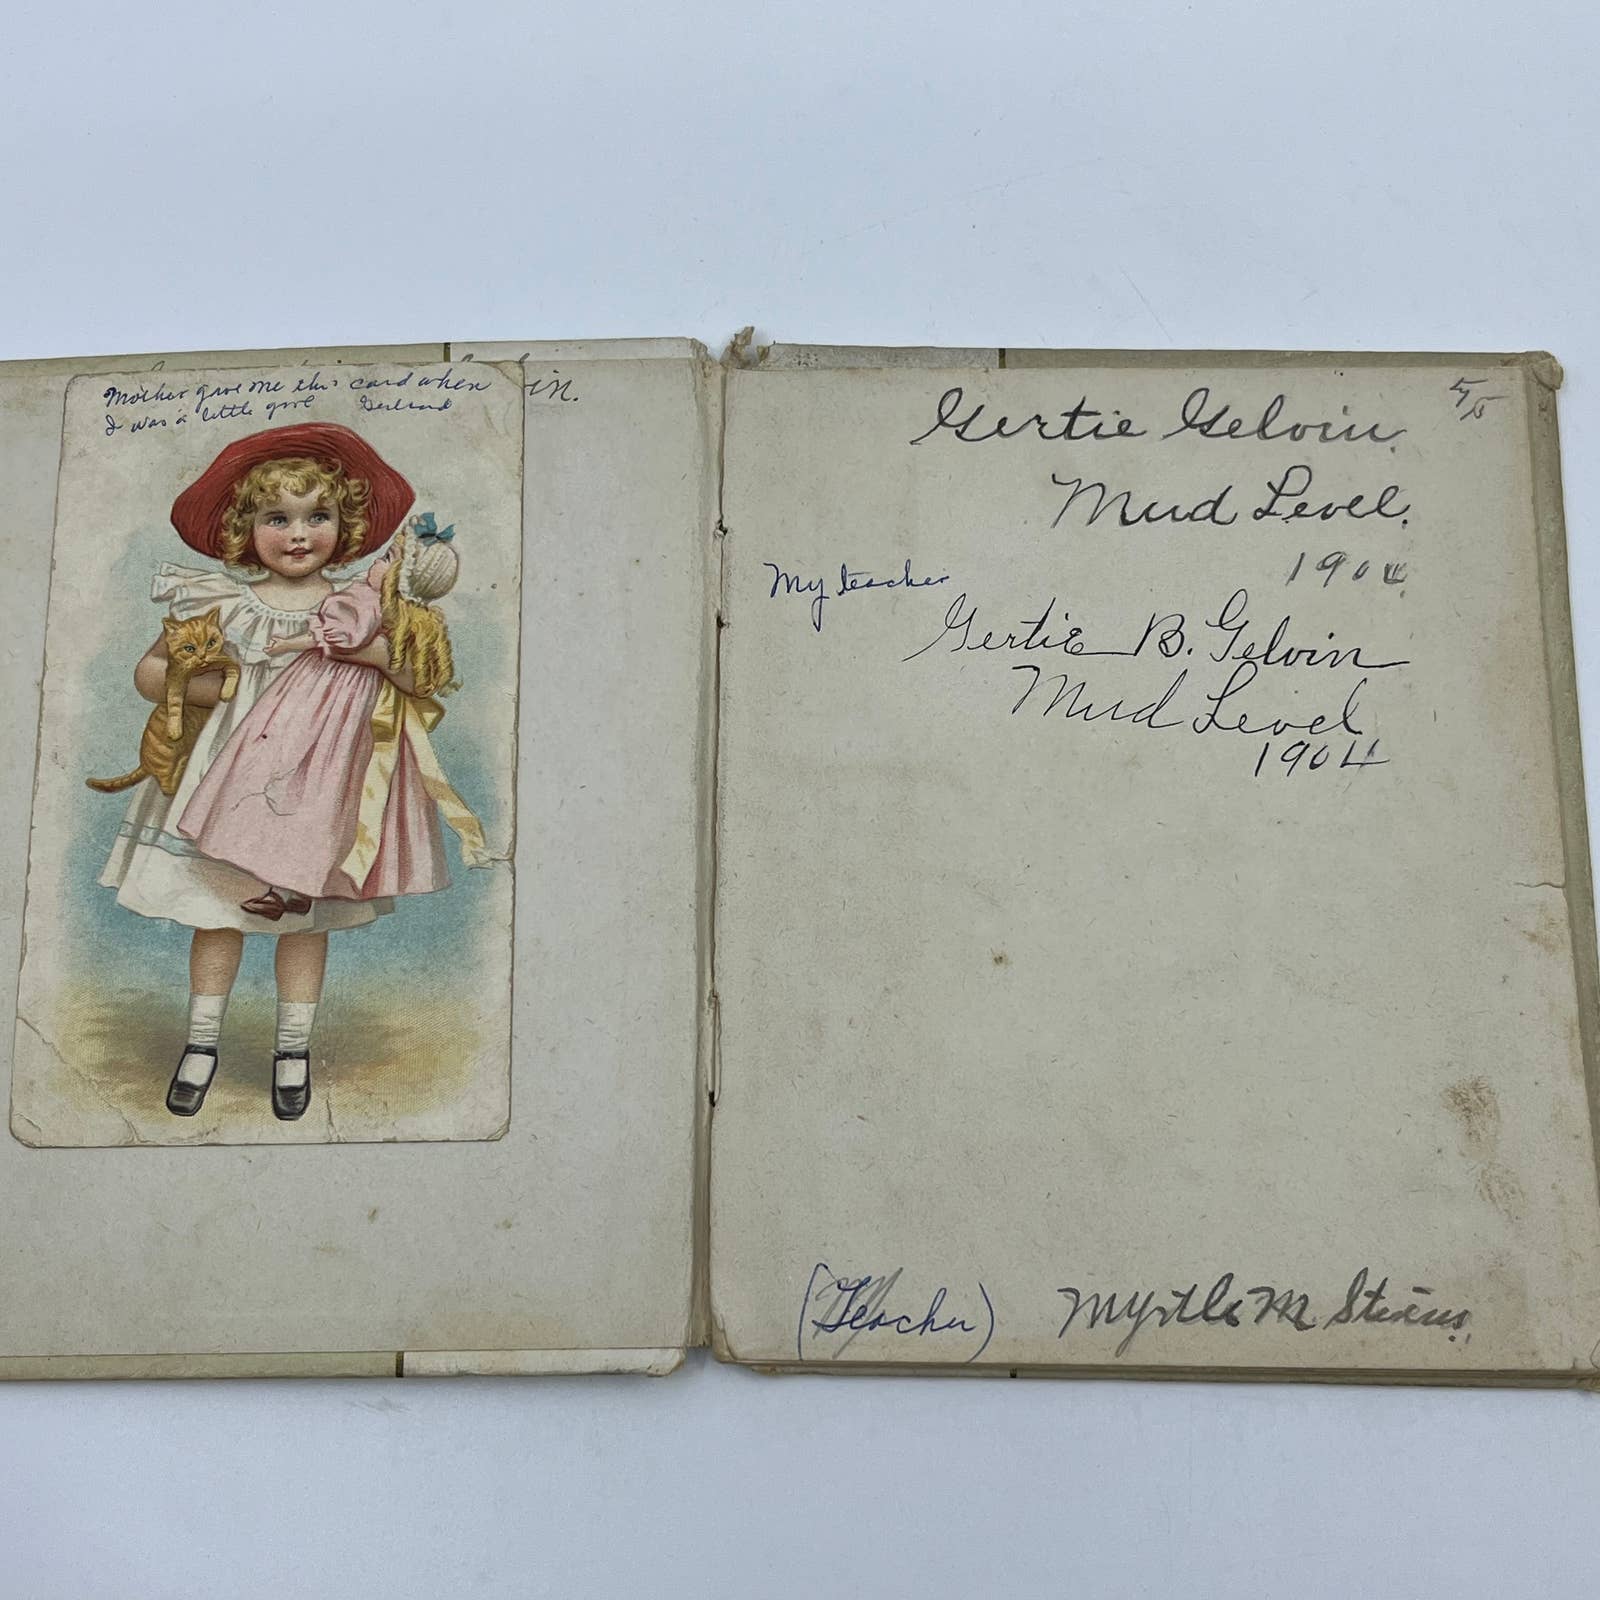 in.
Mother gave me this card when
I was a little girl Gertrud
5/5
Gertie Gelvin.
Mud Level.
1904
My teacher
Gertie B. Gelvin
Mud Level
1904
(Teacher) Myrtle M. Stevens.